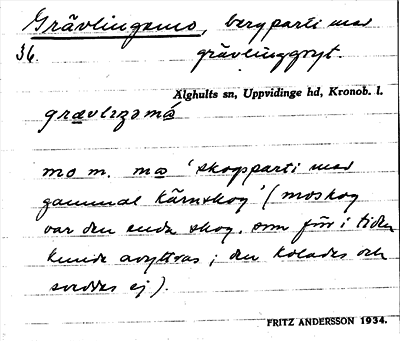 Grävlingamo, bergparti med
36. grävlinggryt.
Älghults sn, Uppvidinge hd, Kronob. l.
mo m. ma 'skogsparti med
gammal kärnskog' (moskog
var den enda skog, som förr i tiden
kunde avyttras; den kolades och
sveddes ej).
FRITZ ANDERSSON 1934.